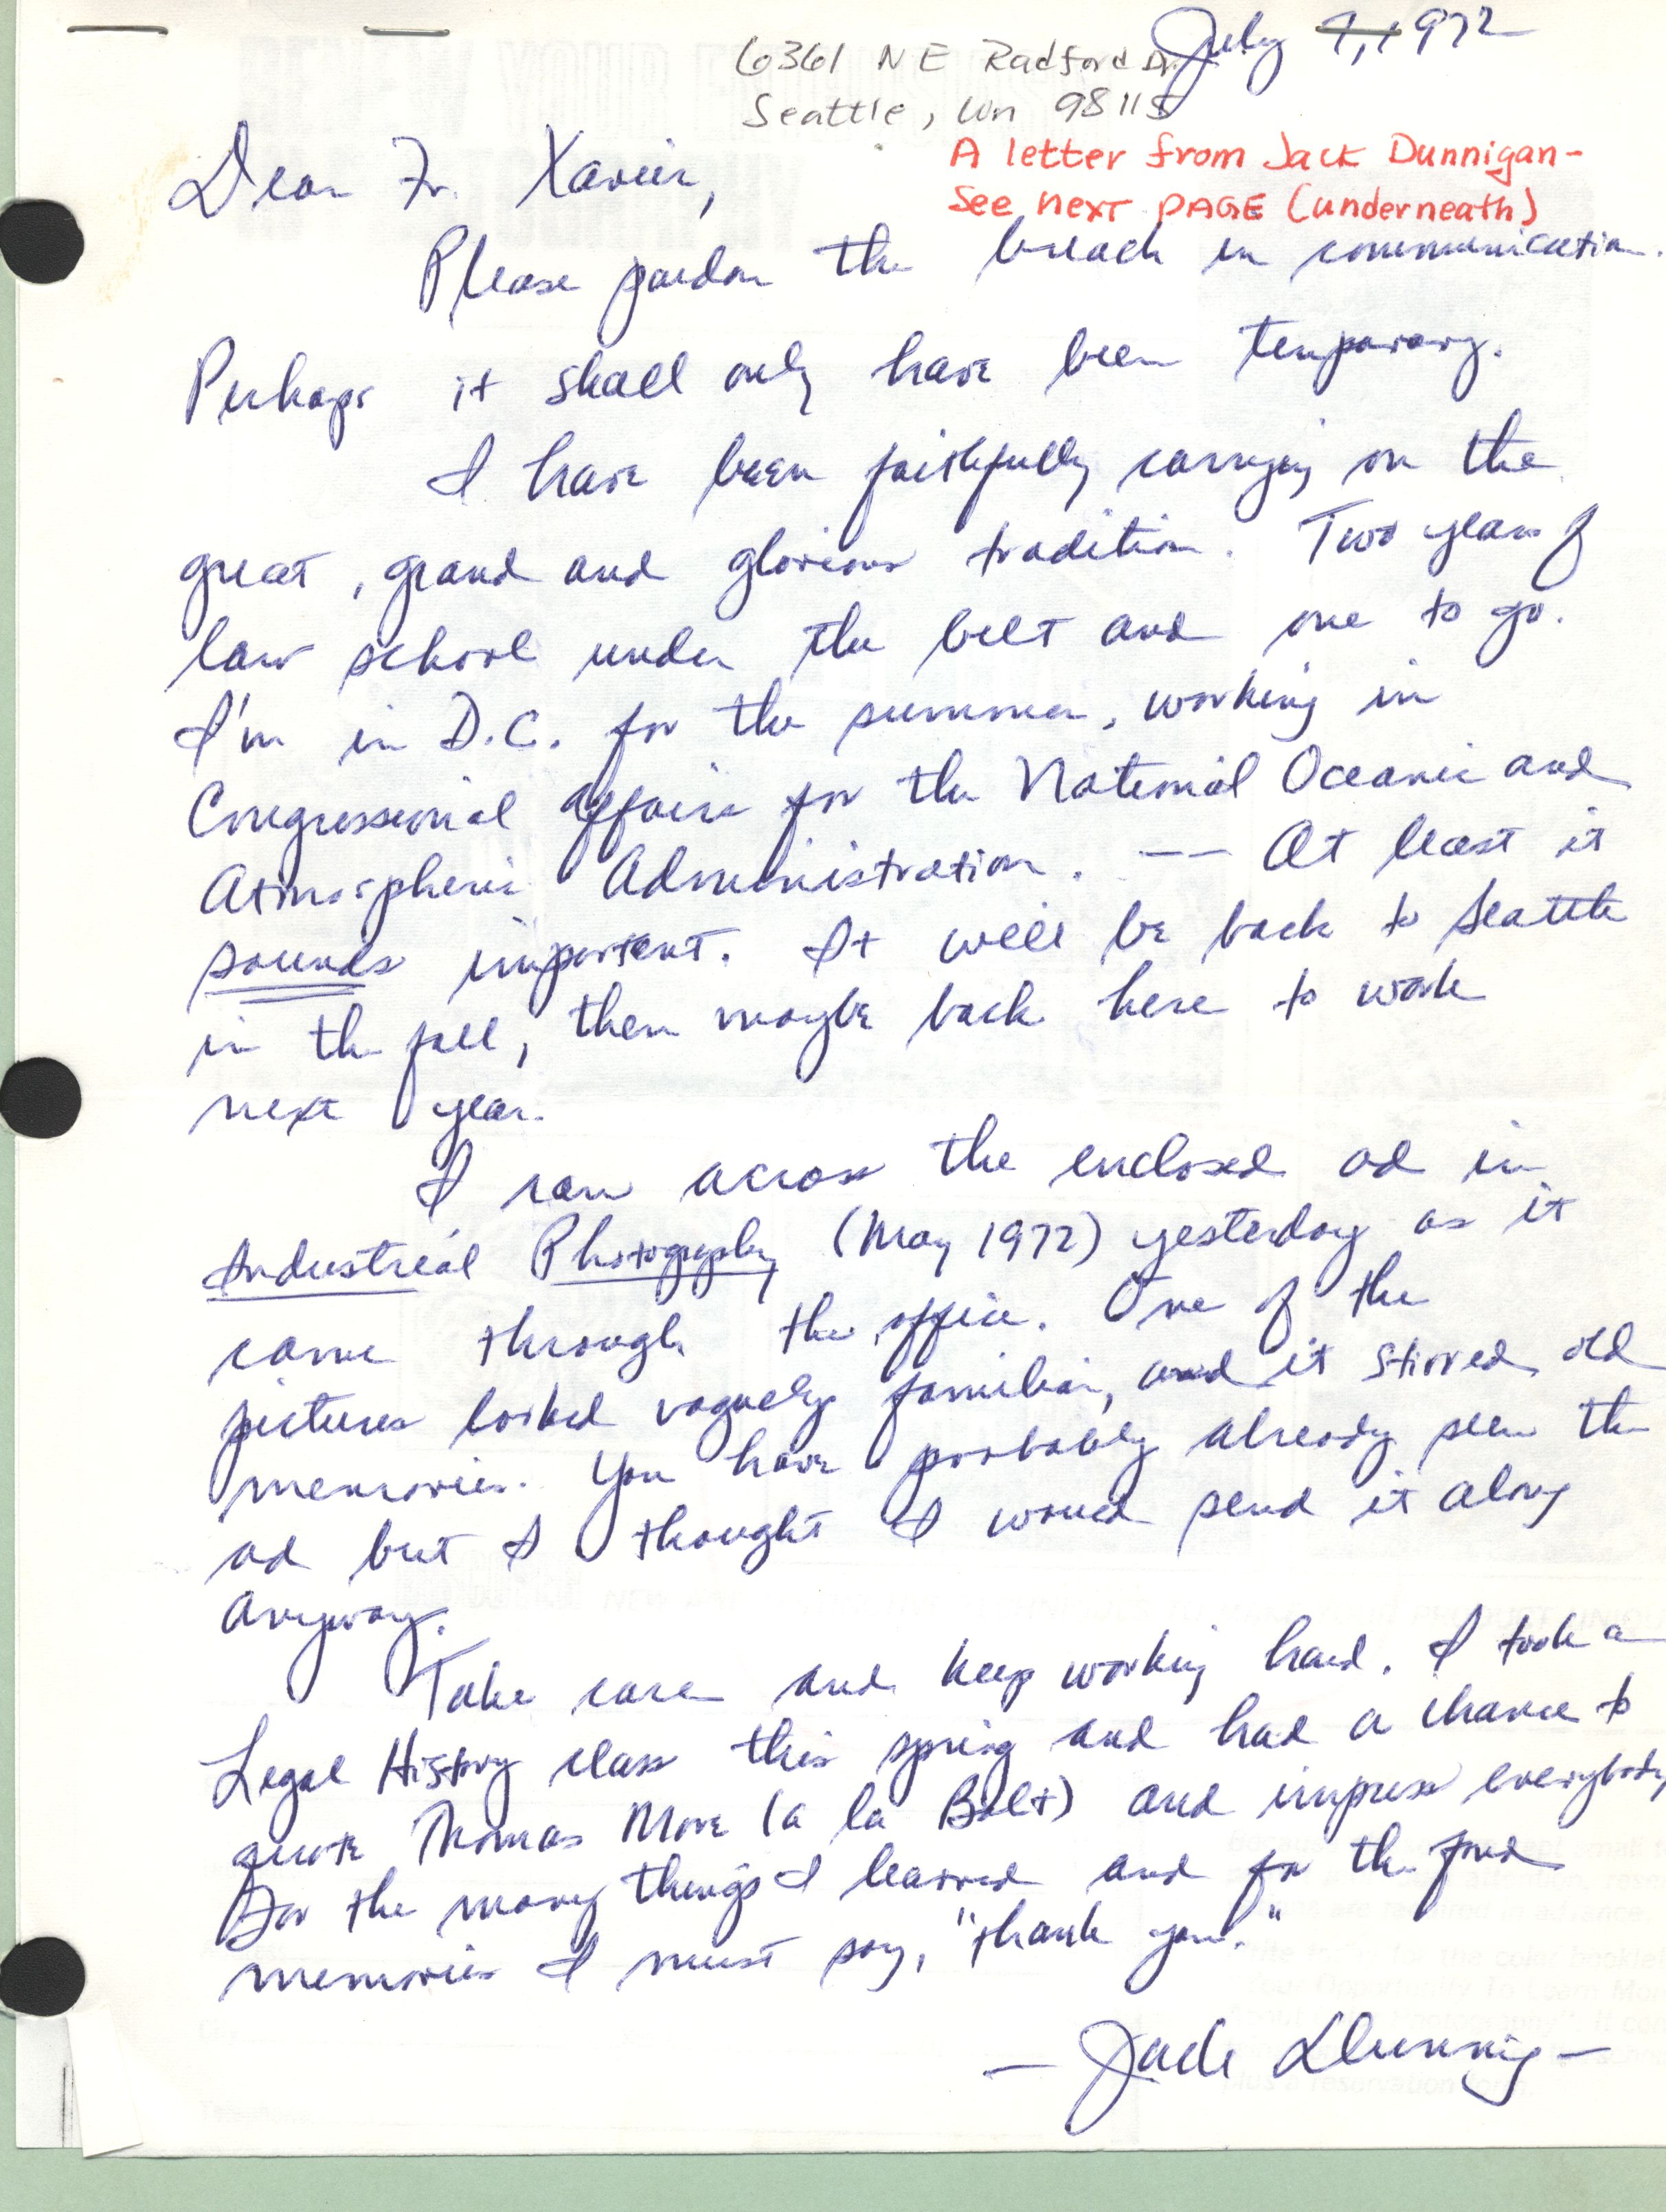 July 7, 1972
6361 NE Radford Dr.
Seattle, Wn 98115
A letter from Jack Dunnigan-
See next PAGE (underneath)
Dear Fr. Xavier,
Please pardon the breach in communication.
Perhaps it shall only have been temporary.
I have been faithfully carrying on the
great, grand and glorious tradition. Two years of
law school under the belt and one to go.
I'm in D.C. for the summer, working in
Congressional affairs for the National Oceanic and
Atmospheric Administration. -- At least it
sounds important. It will be back to Seattle
in the fall, then maybe back here to work
next year.
I ran across the enclosed ad in
Industrial Photography (May 1972) yesterday as it
came through the office. One of the
pictures looked vaguely familiar, and it stirred old
memories. You have probably already seen the
ad but I thought I would send it along
anyway.
Take care and keep working hard. I took a
Legal History class this spring and had a chance to
quote Thomas More (a la Bolt) and impress everybody
For the many things I learned and for the fond
memories I must say, "thank you."
— Jack Dunnig—